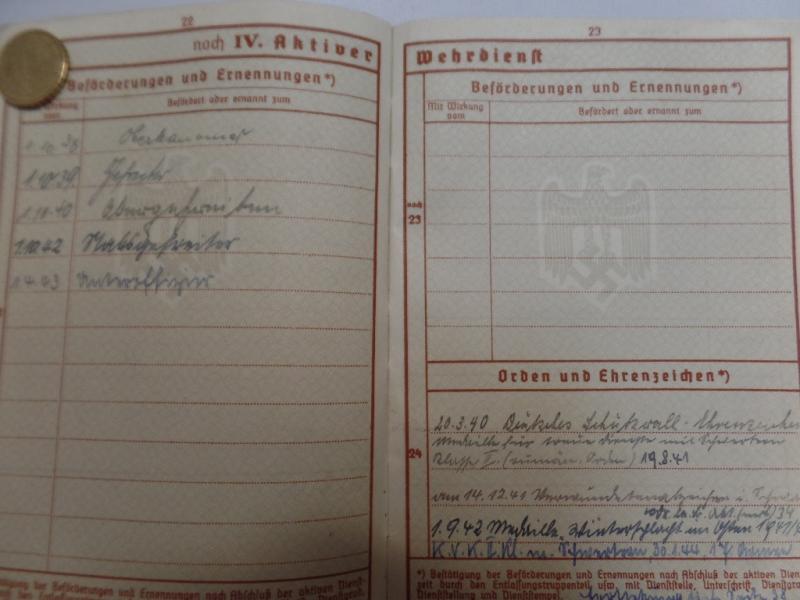 22
noch IV. Aktiver
Beförderungen und Ernennungen*)
Mit Wirkung vom
Befördert oder ernannt zum
1.10.38 Oberkanonier
1.10.39 Gefreiter
1.10.40 Obergefreiten
1.10.42 Stabsgefreiter
1.4.43 Unteroffizier
23
Wehrdienst
Beförderungen und Ernennungen*)
Mit Wirkung vom
Befördert oder ernannt zum
noch
23
Orden und Ehrenzeichen*)
24
20.3.40 Deutsches Schutzwall-Ehrenzeichen
Medaille für treue Dienste mit Schwertern
Klasse (rumän. Orden) 19.8.41
am 14.12.41 Verwundetenabzeichen i. Schwarz
1.9.42 Medaille Winterschlacht im Osten 1941/42
K.V.K. II. Kl. m. Schwertern, 30.1.44, 17. Armee
*) Bestätigung der Beförderungen und Ernennungen nach Abschluß der aktiven Dienst-
zeit durch den Entlassungstruppenteil, usw. mit Dienststelle, Unterschrift, Dienstgrad,
Dienststellung und Dienststempel.